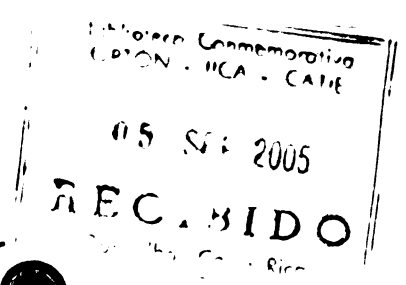 Biblioteca Conmemorativa
ORTON - IICA - CATIE
05 SET 2005
RECIBIDO
Costa Rica